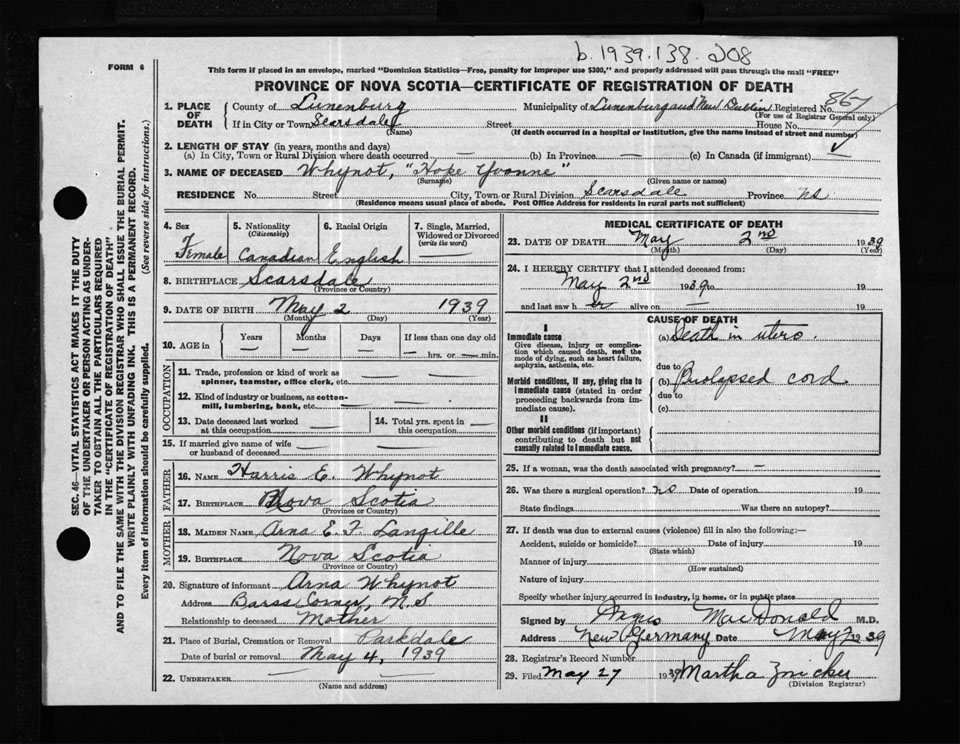 b. 1939.138.208
FORM 6
This form if placed in an envelope, marked "Dominion Statistics—Free, penalty for improper use $300," and properly addressed will pass through the mail "FREE"
PROVINCE OF NOVA SCOTIA—CERTIFICATE OF REGISTRATION OF DEATH
1. PLACE OF DEATH
County of Lunenburg Municipality of Lunenburg and New Dublin Registered No. 867
(For use of Registrar General only)
If in City or Town Scarsdale Street House No.
(Name) (If death occurred in a hospital or institution, give the name instead of street and number)
2. LENGTH OF STAY (in years, months and days)
(a) In City, Town or Rural Division where death occurred — (b) In Province — (c) In Canada (if immigrant) —
3. NAME OF DECEASED Whynot, "Hope Yvonne"
(Surname) (Given name or names)
RESIDENCE No. Street City, Town or Rural Division Scarsdale Province NS
(Residence means usual place of abode. Post Office Address for residents in rural parts not sufficient)
4. Sex Female
5. Nationality (Citizenship) Canadian
6. Racial Origin English
7. Single, Married, Widowed or Divorced (write the word) —
8. BIRTHPLACE Scarsdale
(Province or Country)
9. DATE OF BIRTH May 2 1939
(Month) (Day) (Year)
10. AGE in Years — Months — Days — If less than one day old
— hrs. or — min.
OCCUPATION
11. Trade, profession or kind of work as spinner, teamster, office clerk, etc. —
12. Kind of industry or business, as cotton-mill, lumbering, bank, etc. —
13. Date deceased last worked at this occupation —
14. Total yrs. spent in this occupation —
15. If married give name of wife or husband of deceased —
FATHER
16. NAME Harris E. Whynot
17. BIRTHPLACE Nova Scotia
(Province or Country)
MOTHER
18. MAIDEN NAME Arna E. F. Langille
19. BIRTHPLACE Nova Scotia
(Province or Country)
20. Signature of informant Arna Whynot
Address Barss Corner, N.S
Relationship to deceased Mother
21. Place of Burial, Cremation or Removal Parkdale
Date of burial or removal May 4, 1939
22. UNDERTAKER
(Name and address)
MEDICAL CERTIFICATE OF DEATH
23. DATE OF DEATH May 2nd 1939
(Month) (Day) (Year)
24. I HEREBY CERTIFY that I attended deceased from:
May 2nd 1939 to 19
and last saw h er alive on — 19
CAUSE OF DEATH
I
Immediate cause
Give disease, injury or complication which caused death, not the mode of dying, such as heart failure, asphyxia, asthenia, etc.
(a) Death in utero.
due to
Morbid conditions, if any, giving rise to immediate cause (stated in order proceeding backwards from immediate cause).
(b) Prolapsed cord
due to
(c)
II
Other morbid conditions (if important) contributing to death but not causally related to immediate cause.
25. If a woman, was the death associated with pregnancy? —
26. Was there a surgical operation? no Date of operation 19
State findings Was there an autopsy?
27. If death was due to external causes (violence) fill in also the following:—
Accident, suicide or homicide? Date of injury 19
(State which)
Manner of injury
(How sustained)
Nature of injury
Specify whether injury occurred in industry, in home, or in public place
Signed by Angus MacDonald M.D.
Address New Germany Date May 2 1939
28. Registrar's Record Number
29. Filed May 27 1939 Martha Zwicker
(Division Registrar)
SEC. 46—VITAL STATISTICS ACT MAKES IT THE DUTY
OF THE UNDERTAKER OR PERSON ACTING AS UNDERTAKER TO OBTAIN ALL THE PARTICULARS REQUIRED
IN THE "CERTIFICATE OF REGISTRATION OF DEATH"
AND TO FILE THE SAME WITH THE DIVISION REGISTRAR WHO SHALL ISSUE THE BURIAL PERMIT.
WRITE PLAINLY WITH UNFADING INK. THIS IS A PERMANENT RECORD.
Every item of information should be carefully supplied. (See reverse side for instructions.)